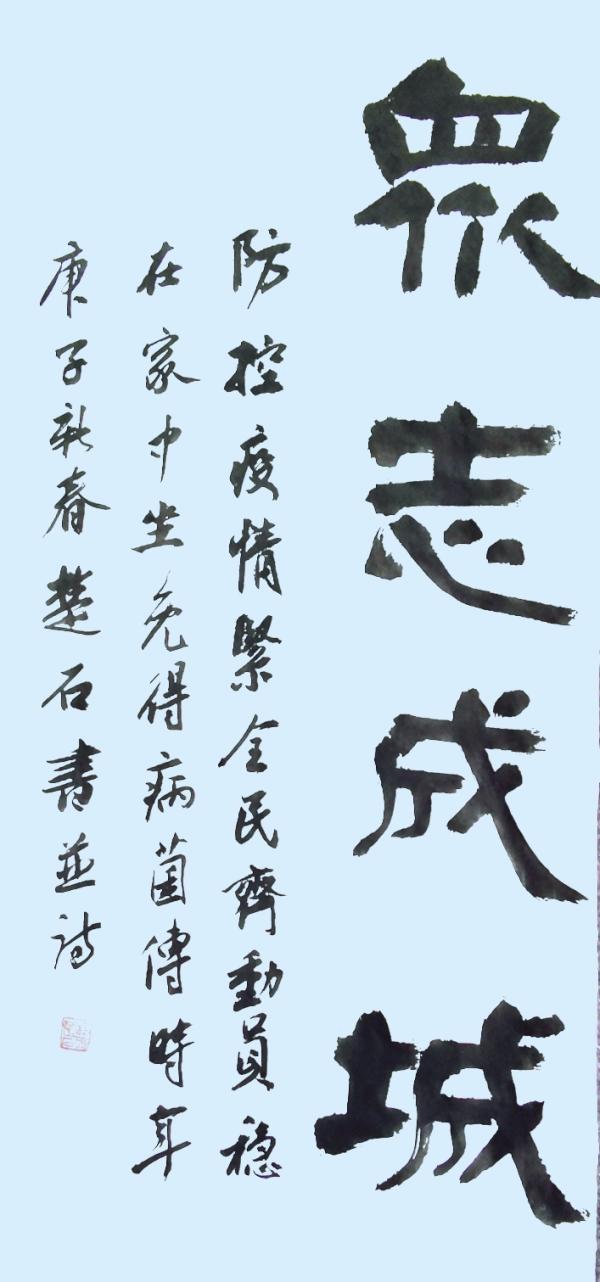 衆志成城
防控疫情緊全民齊動員稳
在家中坐免得病菌傳時年
庚子新春楚石書並詩